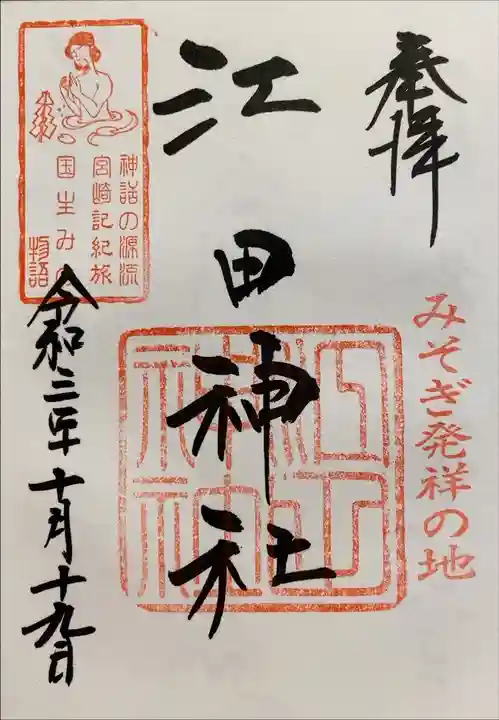 奉拝
みそぎ発祥の地
江田神社
江田神社
神話の源流
宮崎記紀旅
国生みの
物語
令和三年十月十九日